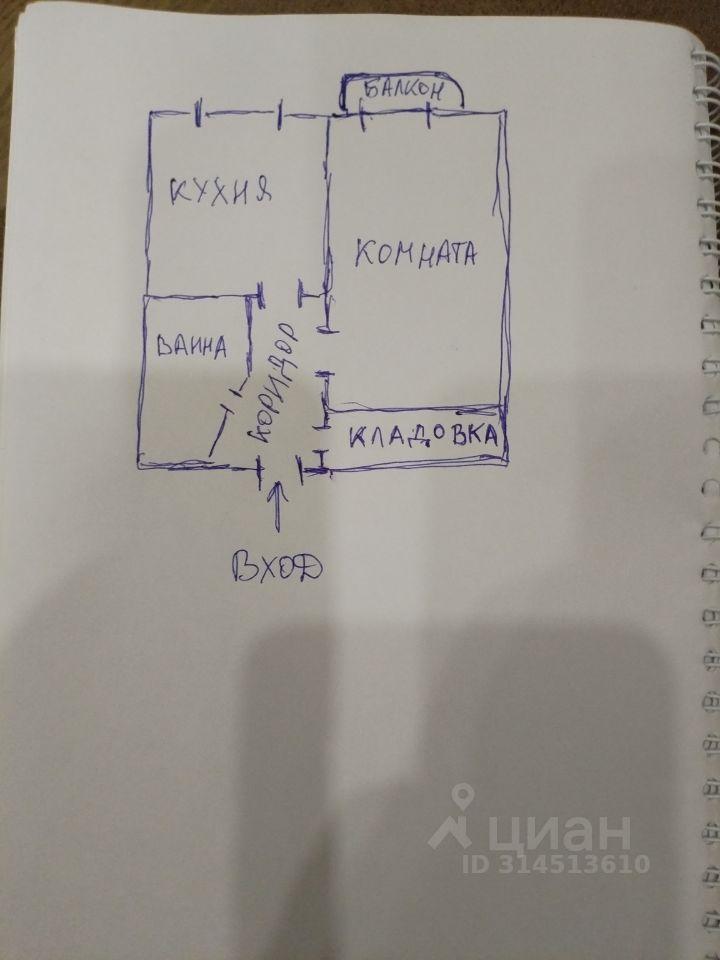 БАЛКОН
КУХНЯ
КОМНАТА
ВАННА
КОРИДОР
КЛАДОВКА
ВХОД
циан
ID 314513610